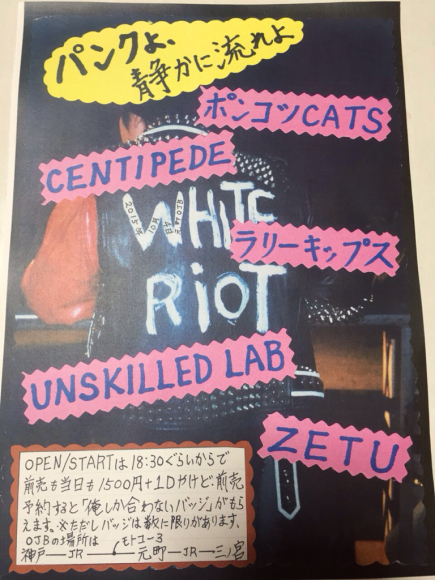 パンクよ、
静かに流れよ
ポンコツCATS
CENTIPEDE
WHITE
RiOT
ラリーキップス
UNSKILLED LAB
ZETU
OPEN/STARTは18:30ぐらいからで
前売も当日も1500円+1Dやけど、前売
予約すると「俺しか合わないバッジ」がもら
えます。※ただしバッジは数に限りがあります。
OJBの場所は モトコー3
神戸―JR― 元町―JR―三ノ宮